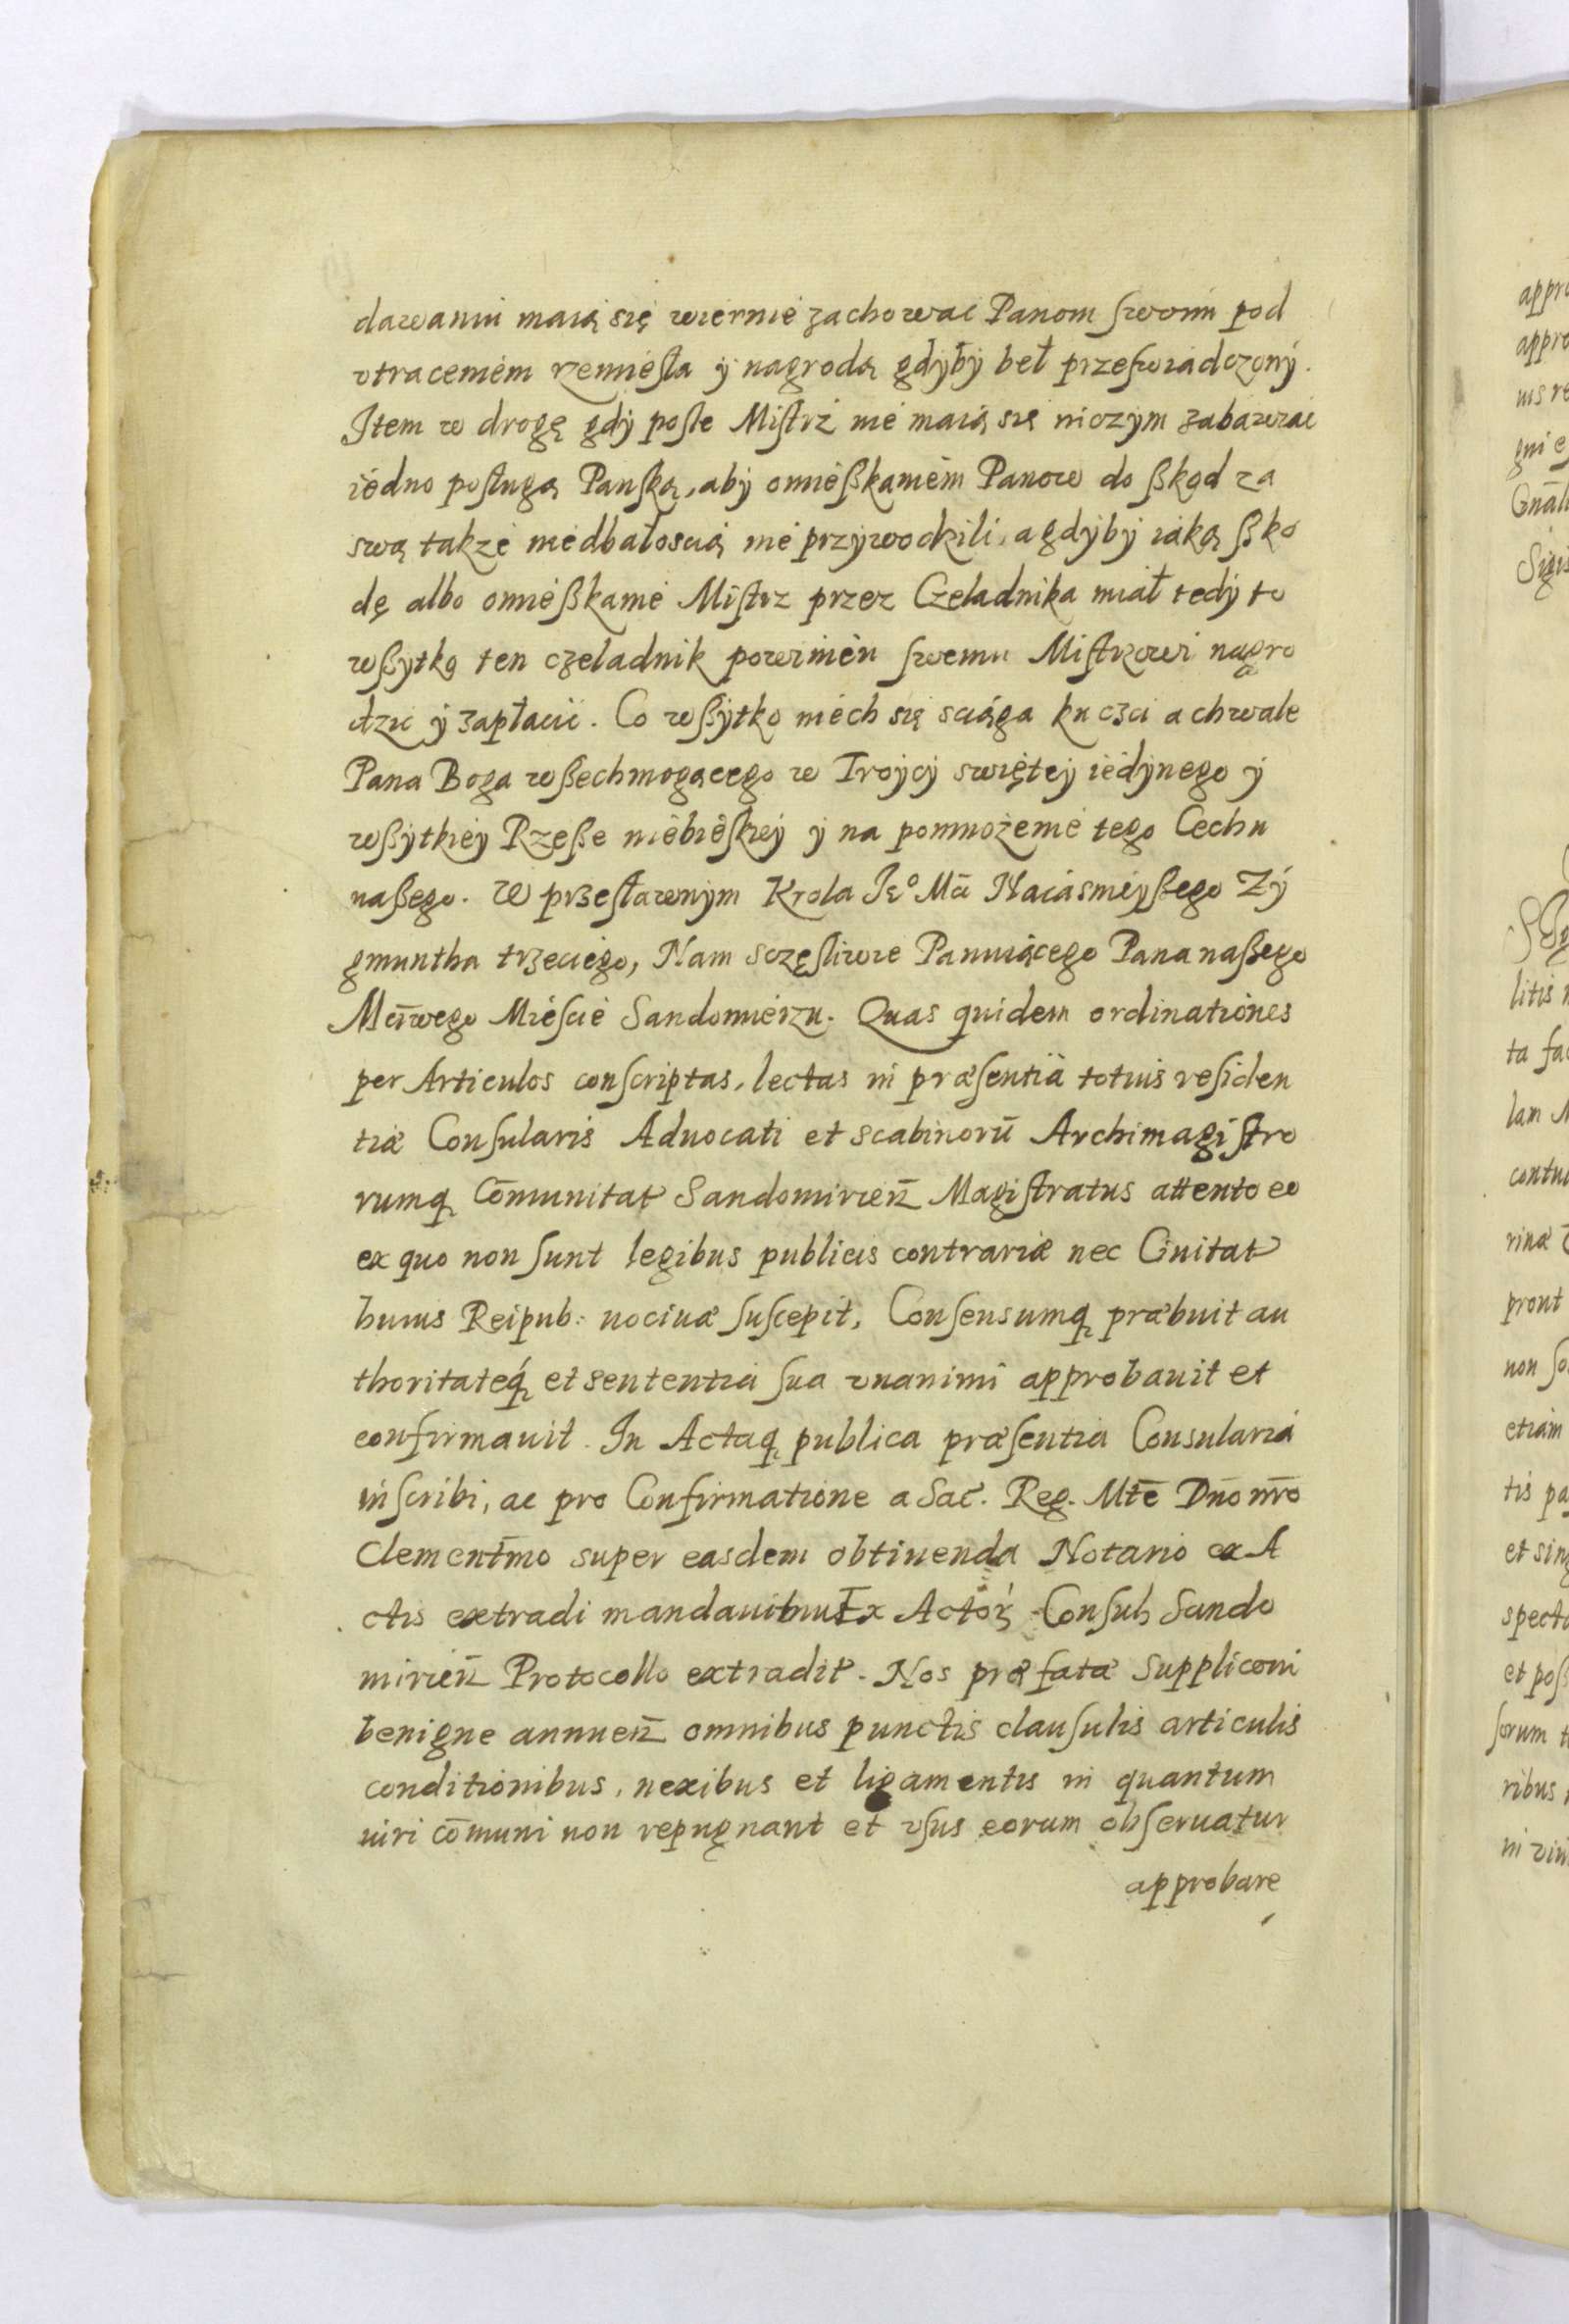 dawaniu maią się wiernie zachowac Panom swoim pod
vtraceniem rzemięsła ÿ nagrodą gdÿbÿ beł przeswiadczonÿ.
Item w drogę gdÿ posle Mistrz nie maią się niczym zabawiac
iedno posługą Panską, abÿ omießkaniem Panow do ßkod za
swą takze niedbałoscią nie przÿwodzili, a gdÿbÿ iaką ßko
dę albo omießkanie Mistrz przez Czeladnika miał tedÿ to
wßytko ten czeladnik powinien swemu Mistrzowi nagro
dzic ÿ zapłacic. Co wßÿtko niech się sciąga ku czci a chwale
Pana Boga wßechmogącego w Troÿcÿ swięteÿ iedÿnego ÿ
wßÿtkieÿ Rzeße niebieskieÿ ÿ na pomnożenie tego Cechu
naßego. W przesławnÿm Krola Je° Mći Naiasnieÿßego Zÿ
gmuntha trzeciego, Nam sczęsliwie Panuiącego Pana naßego
Miłwego Miescie Sandomierzu. Quas quidem ordinationes
per Articulos conscriptas, lectas in præsentia totius residen
tiæ Consularis Aduocati et scabinorū Archimagistro
rumq̨ Cōmunitat Sandomirień Magistratus attento eo
ex quo non sunt legibus publicis contrariæ nec Ciuitat
huius Reipub: nociuæ suscepit, Consensumq̨ præbuit au
thoritateq̨ et sententia sua vnanimi approbauit et
confirmauit. In Actaq̨ publica præsentia Consularia
inscribi, ac pro Confirmatione a Sac. Reg. Mtē Dnō nrō
Clementm̄o super easdem obtinenda Notario ex A
ctis extradi mandauit Ex Actor Consuls Sando
mirień Protocollo extradit. Nos præfatæ Supplicōni
benigne annueń omnibus punctis clausulis articulis
conditionibus, nexibus et ligamentis in quantum
iuri cōmuni non repugnant et vsus eorum obseruatur
approbare